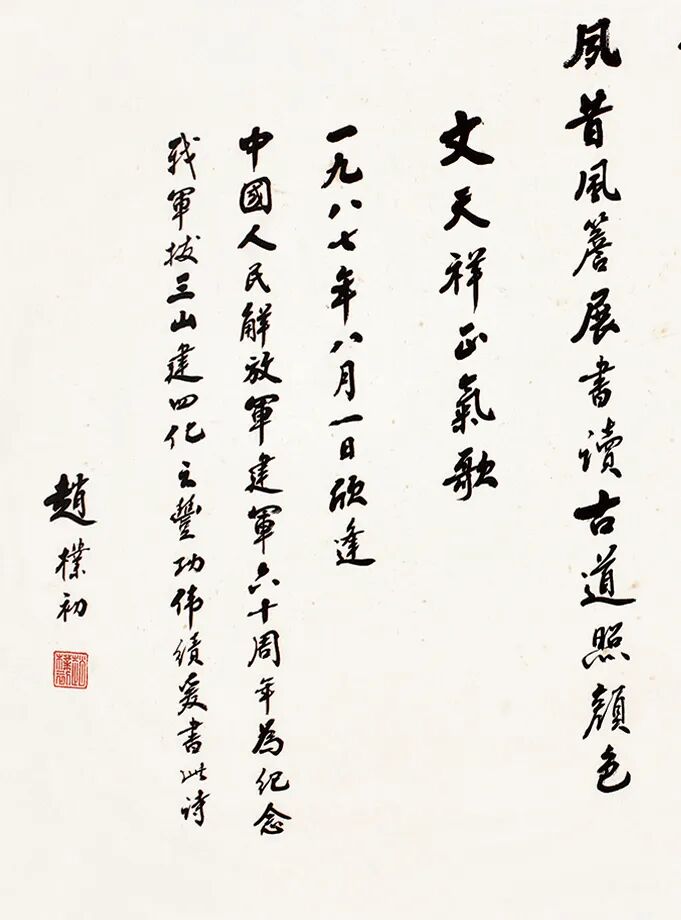 夙昔風簷展書讀古道照顏色
文天祥正氣歌
一九八七年八月一日欣逢
中國人民解放軍建軍六十周年為紀念
我軍拔三山建四化之豐功伟績爰書此诗
趙樸初
趙樸初